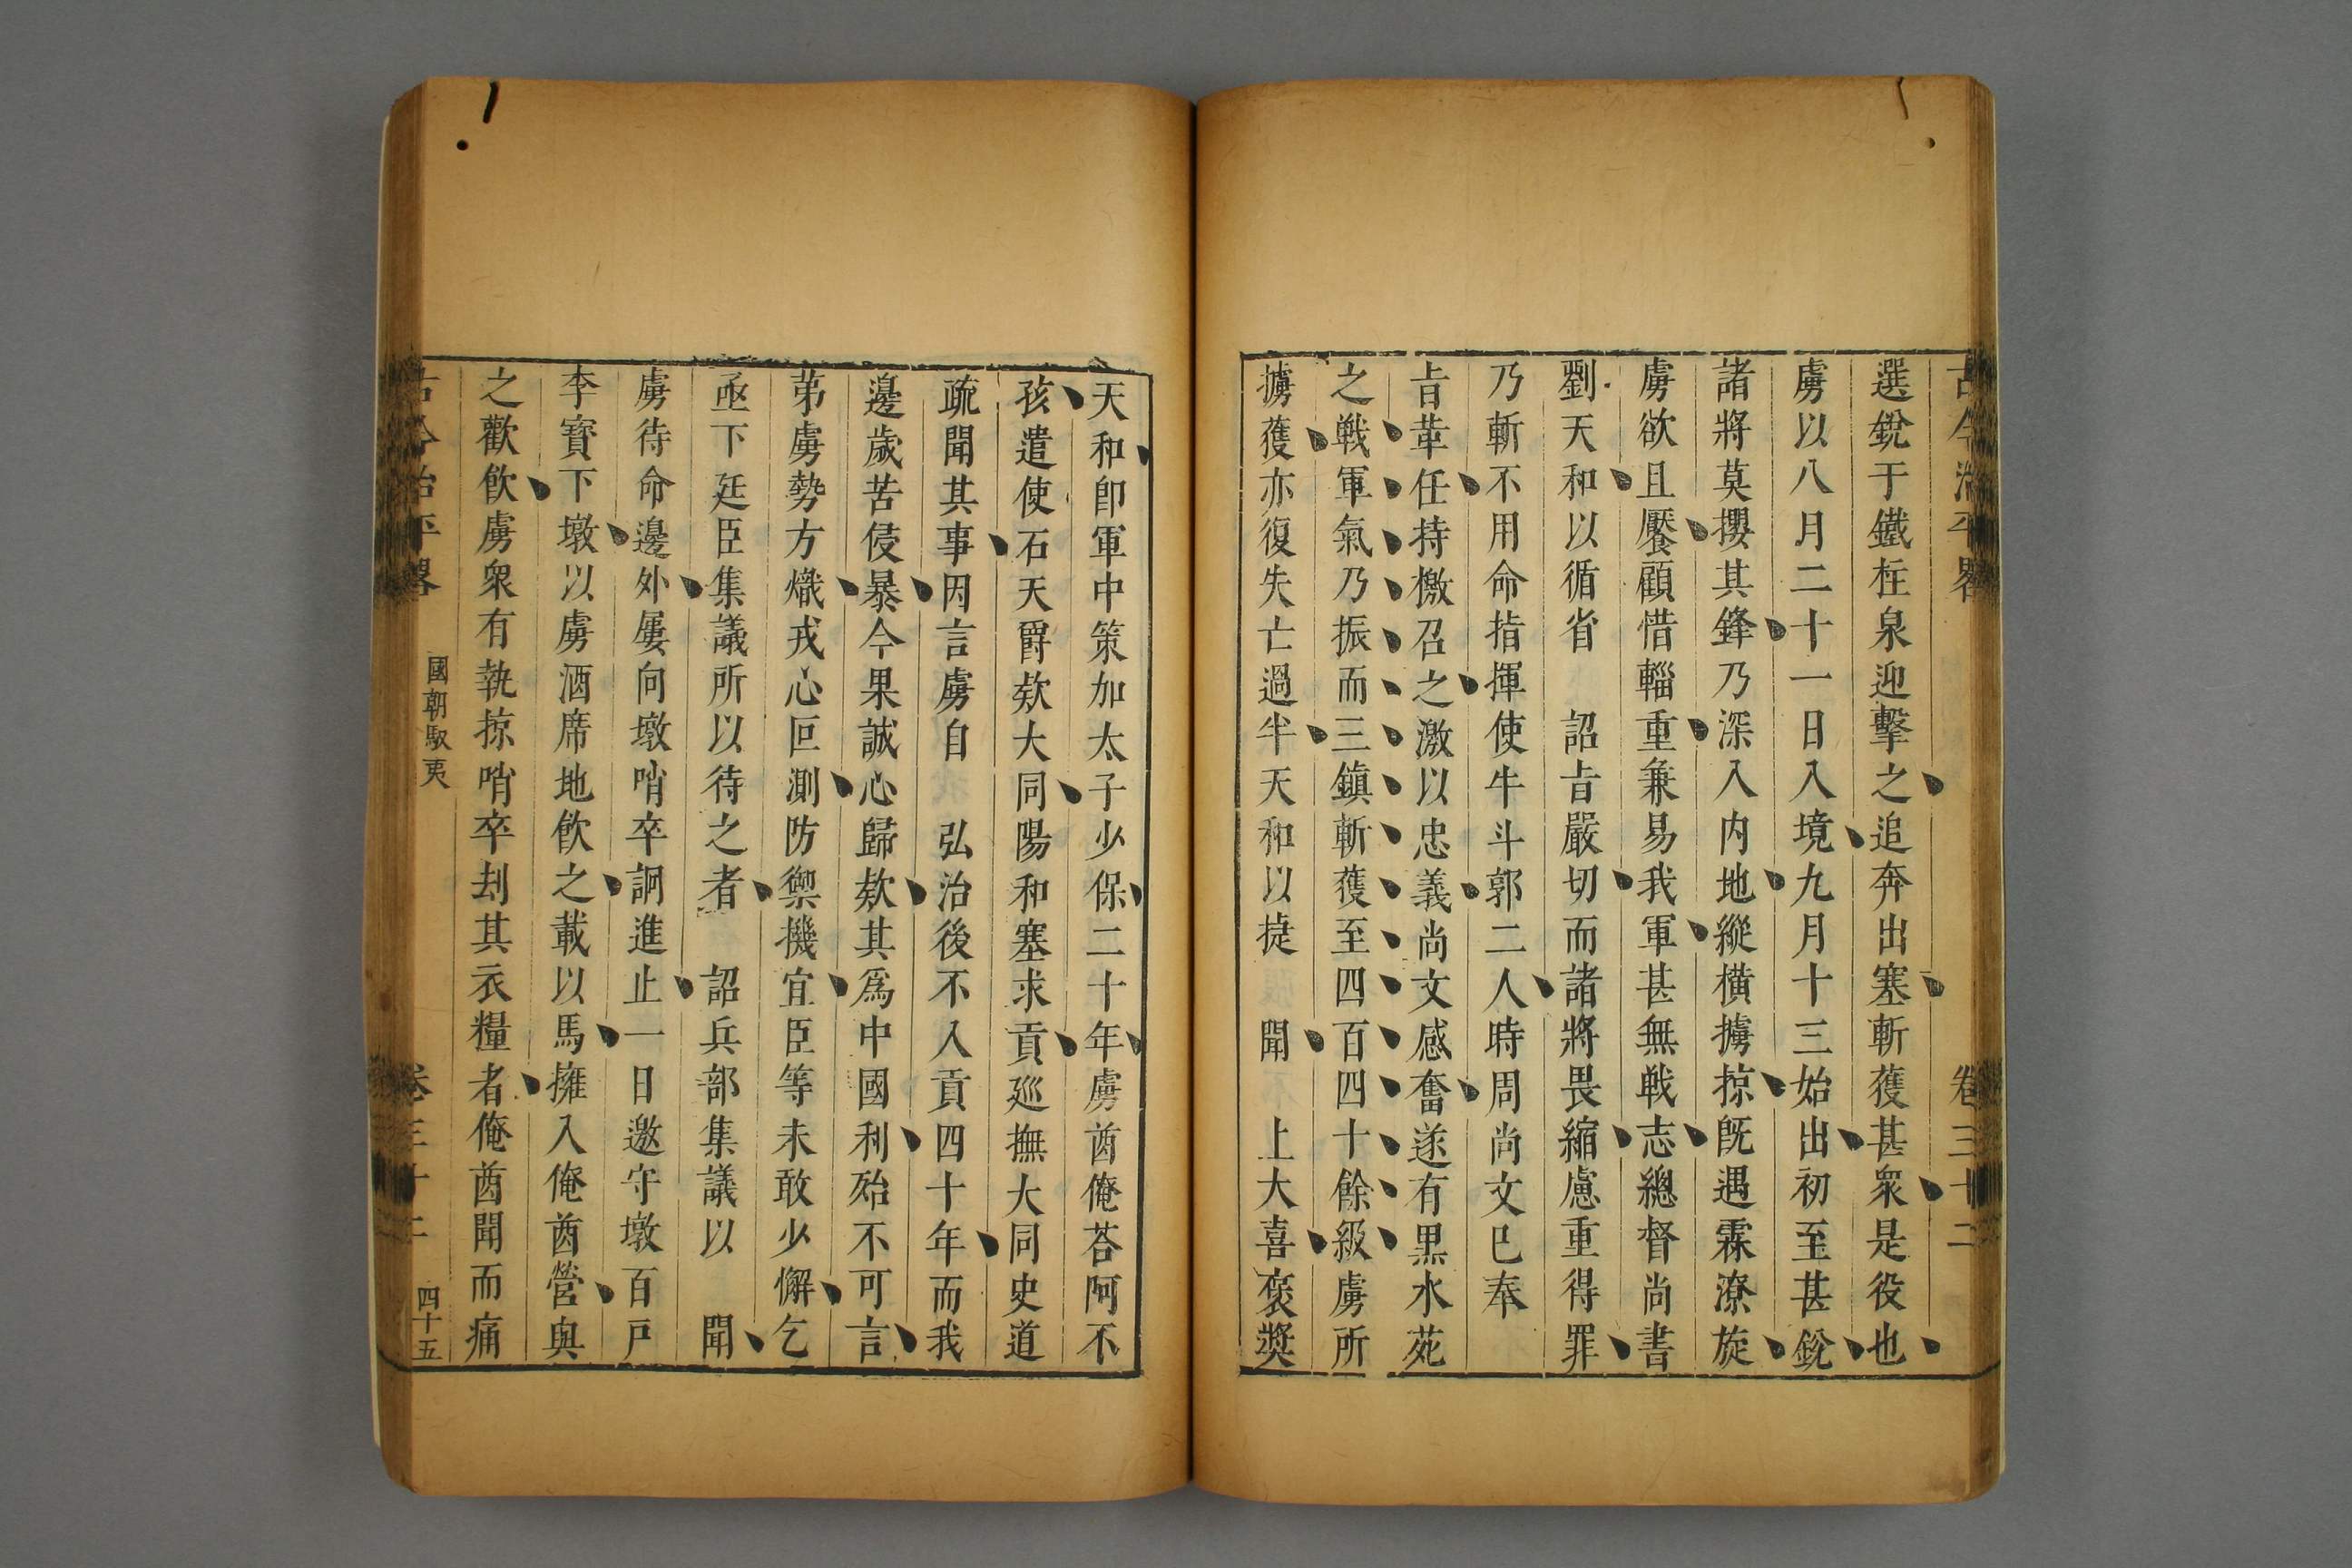 古今治平畧 卷三十二
選銳于鐵柱泉迎擊之追奔出塞斬獲甚衆是役也
虜以八月二十一日入境九月十三始出初至甚銳
諸將莫攖其鋒乃深入内地縱橫擄掠旣遇霖潦旋
虜欲且饜顧惜輜重兼易我軍甚無戦志總督尚書
劉天和以循省 詔㫖嚴切而諸將畏縮慮重得罪
乃斬不用命指揮使牛斗郭二人時周尚文巳奉
㫖革任持檄召之激以忠義尚文感奮遂有黒水苑
之戦軍氣乃振而三鎮斬獲至四百四十餘級虜所
擄獲亦復失亡過半天和以捷 聞 上大喜褒奬
天和卽軍中策加太子少保二十年虜酋俺荅阿不
孩遣使石天爵欵大同陽和塞求貢廵撫大同史道
疏聞其事因言虜自 弘治後不入貢四十年而我
邊歲苦侵暴今果誠心歸欵其爲中國利殆不可言
第虜勢方熾戎心叵測防禦機宜臣等未敢少懈乞
亟下廷臣集議所以待之者 詔兵部集議以 聞
虜待命邊外屢向墩哨卒詗進止一日邀守墩百戸
李寳下墩以虜酒席地飮之載以馬擁入俺酋營與
之歡飮虜衆有執掠哨卒刦其衣糧者俺酋聞而痛
古今治平畧 國朝馭夷 卷三十二 四十五